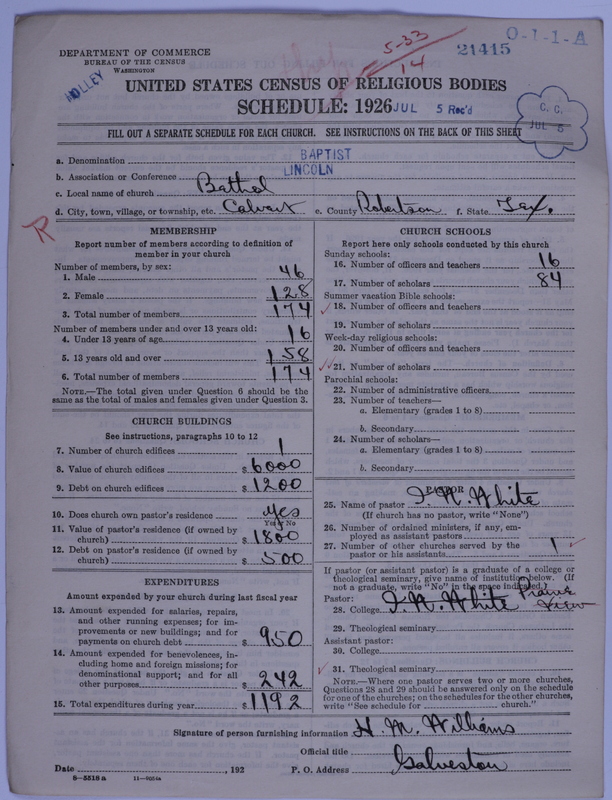 O-1-1-A
5-33
14
21415
DEPARTMENT OF COMMERCE
BUREAU OF THE CENSUS
WASHINGTON
HOLLEY
UNITED STATES CENSUS OF RELIGIOUS BODIES
SCHEDULE: 1926 JUL 5 Rec'd
C. C.
JUL 5
FILL OUT A SEPARATE SCHEDULE FOR EACH CHURCH. SEE INSTRUCTIONS ON THE BACK OF THIS SHEET
a. Denomination BAPTIST
b. Association or Conference LINCOLN
c. Local name of church Bathel
d. City, town, village, or township, etc. Calvert e. County Robertson f. State Tex.
R
MEMBERSHIP
Report number of members according to definition of
member in your church
Number of members, by sex:
1. Male 46
2. Female 128
3. Total number of members 174
Number of members under and over 13 years old:
4. Under 13 years of age 16
5. 13 years old and over 158
6. Total number of members 174
NOTE.—The total given under Question 6 should be
same as the total of males and females given under Question 3.
CHURCH BUILDINGS
See instructions, paragraphs 10 to 12
7. Number of church edifices 1
8. Value of church edifices $ 6000
9. Debt on church edifices $ 1200
10. Does church own pastor's residence yes
Yes or No
11. Value of pastor's residence (if owned by
church) $ 1800
12. Debt on pastor's residence (if owned by
church) $ 500
EXPENDITURES
Amount expended by your church during last fiscal year
13. Amount expended for salaries, repairs,
and other running expenses; for im-
provements or new buildings; and for
payments on church debt $ 950
14. Amount expended for benevolences, in-
cluding home and foreign missions; for
denominational support; and for all
other purposes $ 242
15. Total expenditures during year $ 1192
CHURCH SCHOOLS
Report here only schools conducted by this church
Sunday schools:
16. Number of officers and teachers 16
17. Number of scholars 84
Summer vacation Bible schools:
18. Number of officers and teachers
19. Number of scholars
Week-day religious schools:
20. Number of officers and teachers
21. Number of scholars
Parochial schools:
22. Number of administrative officers
23. Number of teachers—
a. Elementary (grades 1 to 8)
b. Secondary
24. Number of scholars—
a. Elementary (grades 1 to 8)
b. Secondary
PASTOR
25. Name of pastor J. R. White
(If church has no pastor, write "None")
26. Number of ordained ministers, if any, em-
ployed as assistant pastors
27. Number of other churches served by the
pastor or his assistants 1
If pastor (or assistant pastor) is a graduate of a college or
theological seminary, give name of institution below. (If
not a graduate, write "No" in the space indicated.)
Pastor:
28. College J. R. White Prairie View
29. Theological seminary
Assistant pastor:
30. College
31. Theological seminary
NOTE.—Where one pastor serves two or more churches,
Questions 28 and 29 should be answered only on the schedule
for one of the churches; on the schedules for the other churches,
write "See schedule for church."
Signature of person furnishing information H. M. Williams
Official title
Date , 192 P. O. Address Galveston
8-5518 a 11-9064a